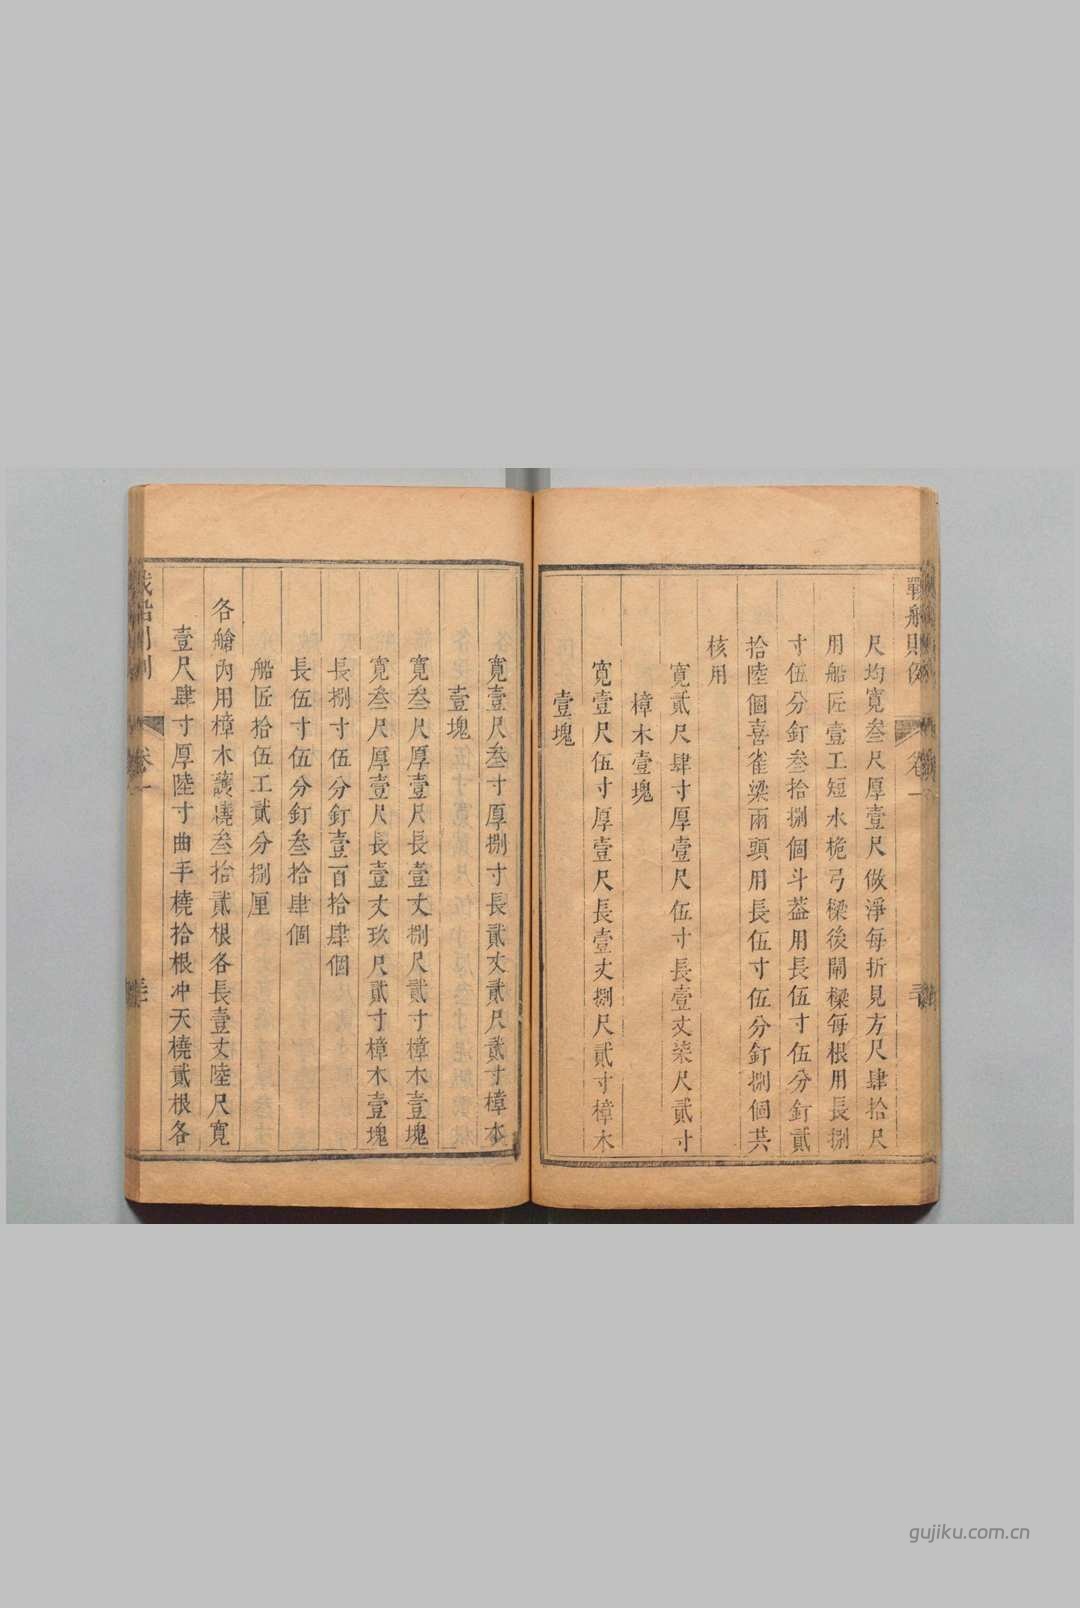 戰船則例
卷一
尺均寬叄尺厚壹尺做淨每折見方尺肆拾尺
用船匠壹工短水桅弓樑後閘樑每根用長捌
寸伍分釘叄拾捌個斗葢用長伍寸伍分釘貳
拾陸個喜雀梁兩頭用長伍寸伍分釘捌個共
核用
寬貳尺肆寸厚壹尺伍寸長壹丈柒尺貳寸
樟木壹塊
寬壹尺伍寸厚壹尺長壹丈捌尺貳寸樟木
壹塊
寬壹尺叄寸厚捌寸長貳丈貳尺貳寸樟木
壹塊
寬叄尺厚壹尺長壹丈捌尺貳寸樟木壹塊
寬叄尺厚壹尺長壹丈玖尺貳寸樟木壹塊
長捌寸伍分釘壹百拾肆個
長伍寸伍分釘叄拾肆個
船匠拾伍工貳分捌厘
各艙內用樟木護𣓌叄拾貳根各長壹丈陸尺寬
壹尺肆寸厚陸寸曲手橈拾根冲天橈貳根各
卷一
gujiku.com.cn